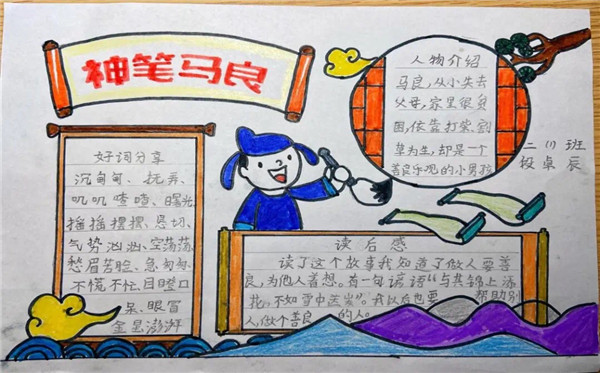 神笔马良
人物介绍
马良,从小失去
父母,家里很贫
困,依靠打柴、割
草为生,却是一个
善良乐观的小男孩
二(1)班
卓辰
好词分享
沉甸甸、抚弄、
叽叽喳喳、曙光
摇摇摆摆、恳切、
气势汹汹、空荡荡
愁眉苦脸、急匆匆、
不慌不忙、目瞪口
呆、眼冒
金星、澎湃
读后感
读了这个故事我知道了做人要善
良,为他人着想。有一句谚语“与其锦上添
花,不如雪中送炭”。我以后也要 帮助别
人,做个善良 的人。